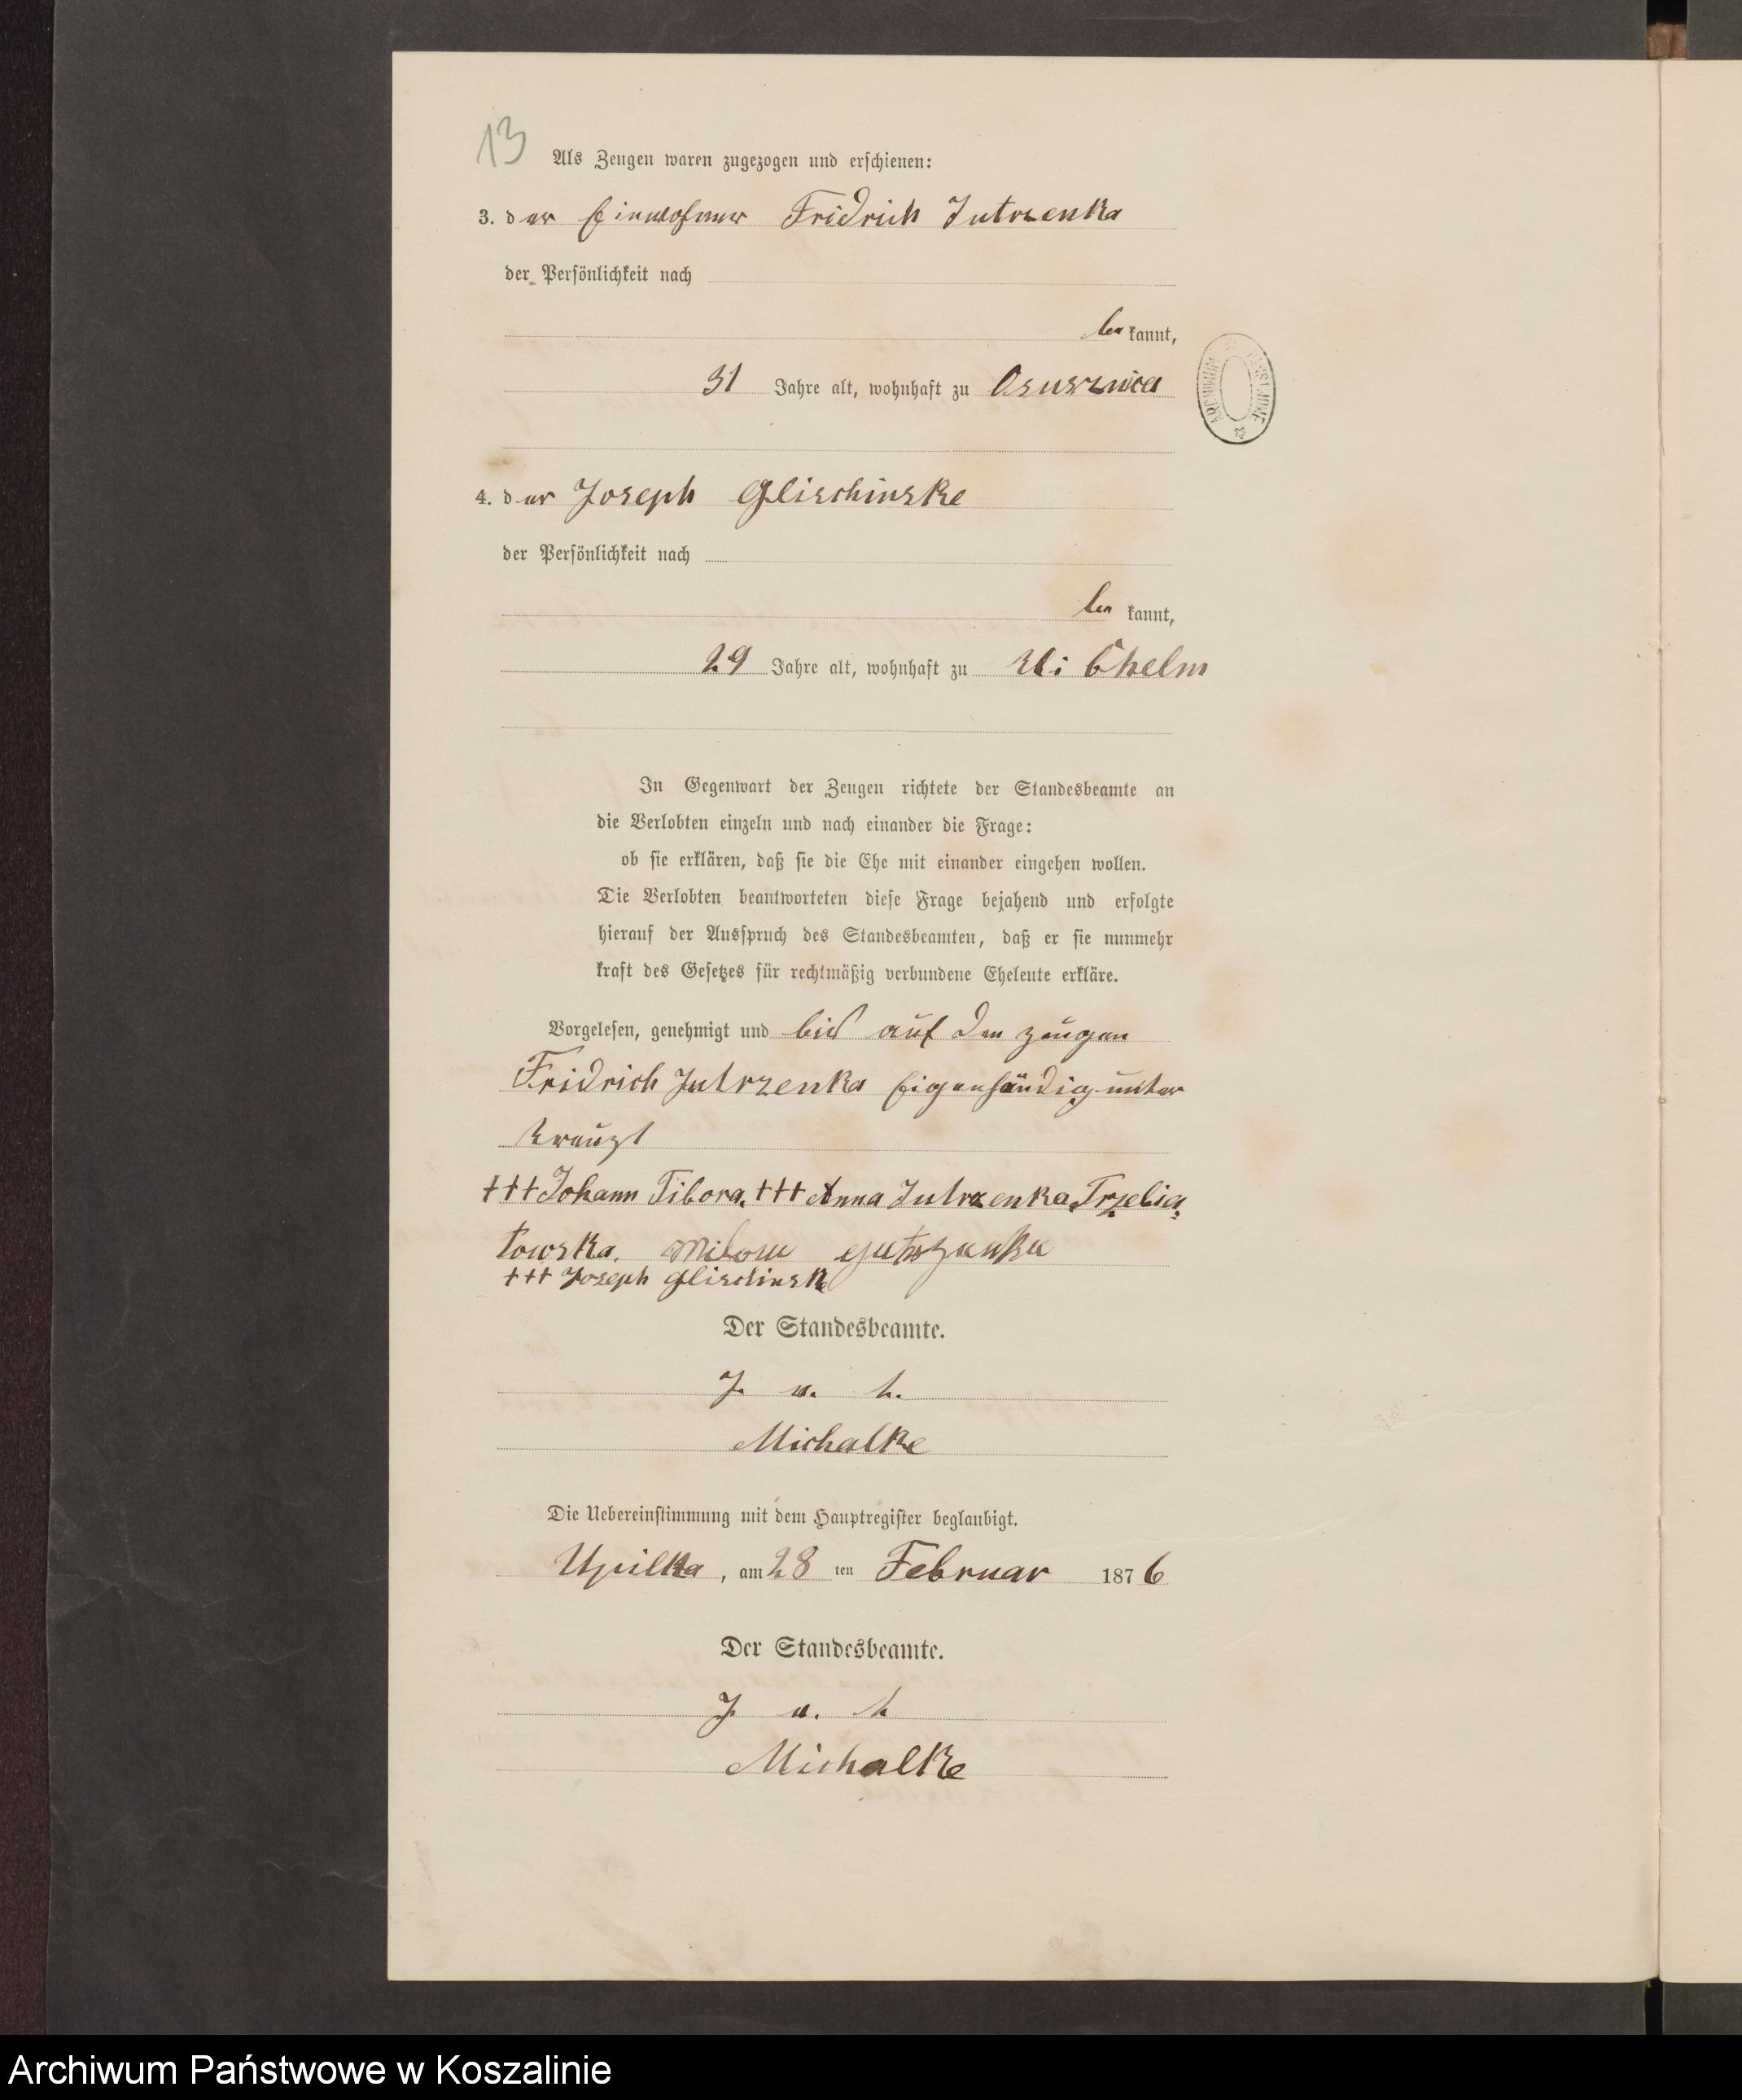 13
Als Zeugen waren zugezogen und erschienen:
3. der Einwohner Fridrich Jutrzenka
der Persönlichkeit nach
be kannt,
31 Jahre alt, wohnhaft zu Osusznica
4. der Joseph Glischinske
der Persönlichkeit nach
be kannt,
29 Jahre alt, wohnhaft zu Kl: Chelm
In Gegenwart der Zeugen richtete der Standesbeamte an
die Verlobten einzeln und nach einander die Frage:
ob sie erklären, daß sie die Ehe mit einander eingehen wollen.
Die Verlobten beantworteten diese Frage bejahend und erfolgte
hierauf der Ausspruch des Standesbeamten, daß er sie nunmehr
kraft des Gesetzes für rechtmäßig verbundene Eheleute erkläre.
Vorgelesen, genehmigt und bis auf den zeugen
Fridrich Jutrzenka Eigenhändig unter
kreuzt
+++ Johann Tibora. +++ Anna Jutrzenka Trzebia
towska.
+++ Joseph Glischinske
Der Standesbeamte.
J. v.
Michalke
Die Uebereinstimmung mit dem Hauptregister beglaubigt.
Upilka, am 28 ten Februar 1876
Der Standesbeamte.
J v.
Michalke
ARCHIWUM PAŃSTWOWE
Archiwum Państwowe w Koszalinie